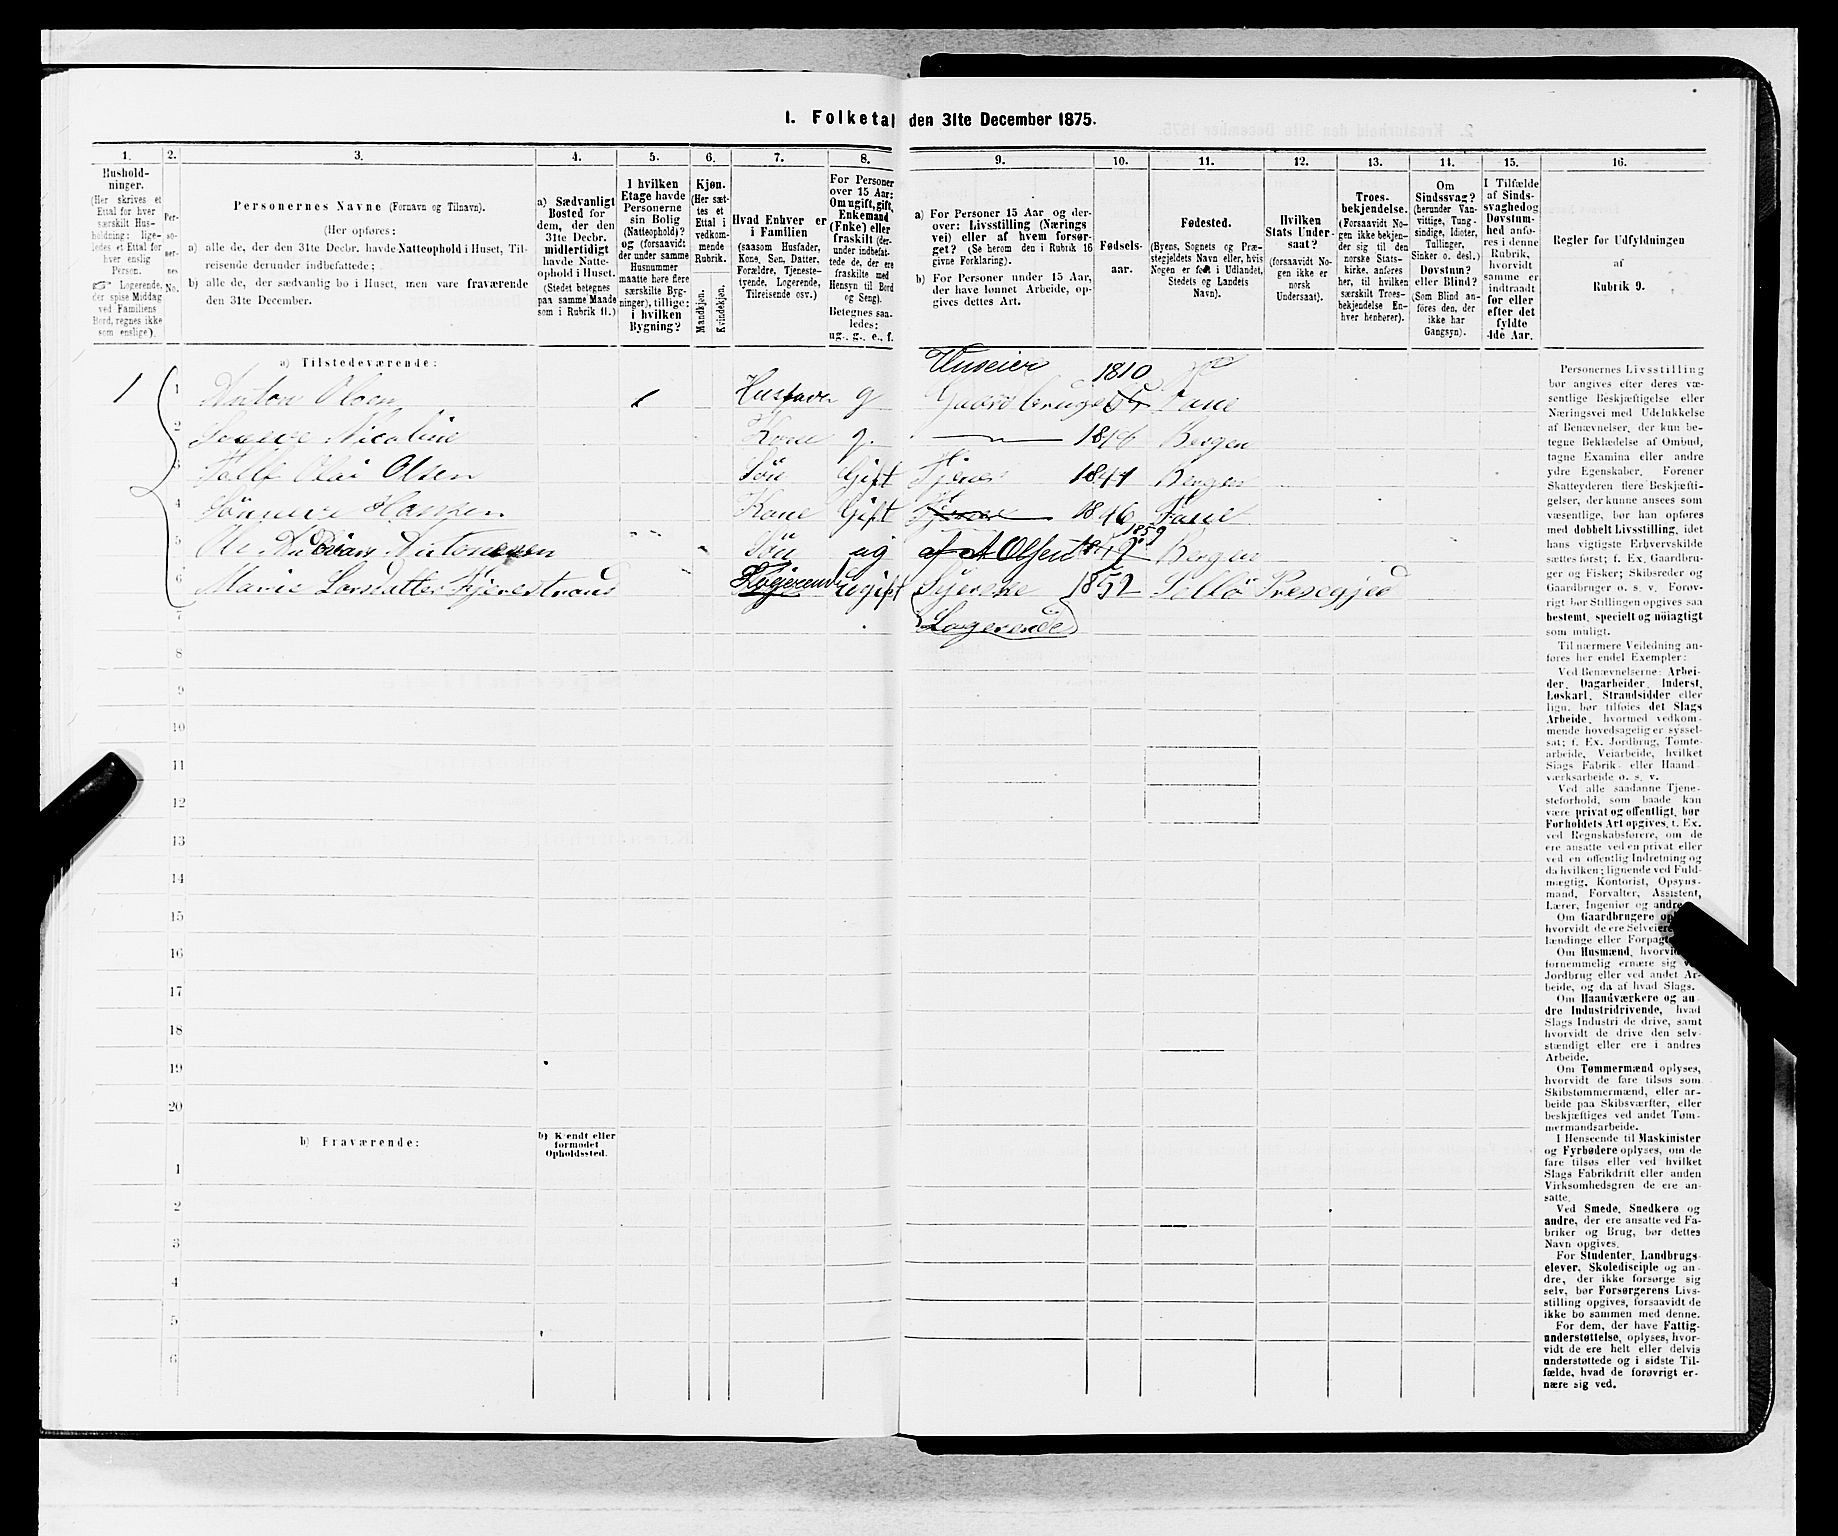 1. Folketal den 31te December 1875.
1.
2.
3.
4.
5.
6.
7.
8.
9.
10.
11.
12.
13.
14.
15.
16.
Hushold-
ninger.
(Her skrives et
Ettal for hver
særskilt Hus-
holdning; lige-
ledes et Ettal for
hver enslig
Person.
☞ Logerende,
der spise Middag
ved Familiens
Bord, regnes ikke
som enslige).
Per-
so-
ner-
nes
No.
Personernes Navne (Fornavn og Tilnavn).
(Her opføres:
a) alle de, der den 31te Decbr. havde Natteophold i Huset, Til-
reisende derunder indbefattede;
b) alle de, der sædvanlig bo i Huset, men vare fraværende
den 31te December.
a) Sædvanligt
Bosted for
dem, der den
31te Decbr.
midlertidigt
havde Natte-
ophold i Huset.
(Stedet betegnes
paa samme Maade
som i Rubrik 11.)
I hvilken
Etage havde
Personerne
sin Bolig
(Natteophold)?
og (forsaavidt
der under samme
Husnummer
maatte høre flere
særskilte Byg-
ninger), tillige:
i hvilken
Bygning?
Kjøn.
(Her sæt-
tes et
Ettal i
vedkom-
mende
Rubrik.
Mandkjøn.
Kvindekjøn.
Hvad Enhver er
i Familien
(saasom Husfader,
Kone, Søn, Datter,
Forældre, Tjeneste-
tyende, Logerende,
Tilreisende osv.)
For Personer
over 15 Aar:
Om ugift, gift,
Enkemand
(Enke) eller
fraskilt (der-
under indbefat-
tede de, der ere
fraskilte med
Hensyn til Bord
og Seng).
Betegnes saa-
ledes:
ug., g., e., f.
a) For Personer 15 Aar og der-
over: Livsstilling (Nærings
vei) eller af hvem forsør-
get? (Se herom den i Rubrik 16
givne Forklaring).
b) For Personer under 15 Aar,
der have lønnet Arbeide, op-
gives dettes Art.
Fødsels-
aar.
Fødested.
(Byens, Sognets og Præ-
stegjeldets Navn eller, hvis
Nogen er født i Udlandet,
Stedets og Landets
Navn).
Hvilken
Stats Under-
saat?
(forsaavidt No-
gen ikke er
norsk
Undersaat).
Troes-
bekjendelse.
(Forsaavidt No-
gen ikke bekjen-
der sig til den
norske Stats-
kirke, anføres
her, til hvilken
særskilt Troes-
bekjendelse En-
hver henhører).
Om
Sindssvag?
(herunder Van-
vittige, Tung-
sindige, Idioter,
Tullinger,
Sinker o. desl.)
Døvstum?
eller Blind?
(Som Blind an-
føres den, der
ikke har
Gangsyn).
I Tilfælde
af Sinds-
svaghed og
Døvstum-
hed anfø-
res i denne
Rubrik,
hvorvidt
samme er
indtraadt
før eller
efter det
fyldte
4de Aar.
Regler for Udfyldningen
af
Rubrik 9.
a) Tilstedeværende:
Huseier 1810
1 1 Anton Olsen Husfader g Gaardbruger Fane
2 Nicoline Kone g. 1816 Bergen
3 Olai Olsen Søn Gift 1844 Bergen
4 Hansen Kone Gift 1846 Fane
1859
5 Ole Antonesen Søn ug af A Olsen Bergen
6 Marie Larsdatter Logerende Ugift Syerske 1852
7 Logerende
8
9
10
11
12
13
14
15
16
17
18
19
20
b) Fraværende:
b) Kjendt eller
formodet
Opholdssted.
1
2
3
4
5
6
Personernes Livsstilling
bør angives efter deres væ-
sentlige Beskjæftigelse eller
Næringsvei med Udelukkelse
af Benævnelser, der kun be-
tegne Beklædelse af Ombud,
tagne Examina eller andre
ydre Egenskaber. Forener
Skatteyderen flere Beskjæfti-
gelser, der kunne ansees som
væsentlige, bør han opføres
med dobbelt Livsstilling, idet
hans vigtigste Erhvervskilde
sættes først; f. Ex. Gaardbru-
ger og Fisker; Skibsreder og
Gaardbruger o. s. v. Forøv-
rigt bør Stillingen opgives saa
bestemt, specielt og nøiagtigt
som muligt.
Til nærmere Veiledning an-
føres her endel Exempler:
Ved Benævnelserne: Arbei-
der, Dagarbeider, Inderst,
Løskarl, Strandsidder eller
lign. bør tilføies det Slags
Arbeide, hvormed vedkom-
mende hovedsagelig er syssel-
sat; f. Ex. Jordbrug, Tomte-
arbeide, Veiarbeide, hvilket
Slags Fabrik- eller Haand-
værksarbeide o. s. v.
Ved alle saadanne Tjene-
steforhold, som baade kan
være privat og offentligt, bør
Forholdets Art opgives, f. Ex.
ved Regnskabsførere, om de
ere ansatte ved en privat eller
ved en offentlig Indretning og
da hvilken; lignende ved Fuld-
mægtig, Kontorist, Opsyns-
mand, Forvalter, Assistent,
Lærer, Ingeniør og andre.
Om Gaardbrugere
hvorvidt de ere Selveiere,
lændinge eller
Om Husmænd,
fornemmelig ernære sig
Jordbrug eller ved andet Ar-
beide, og da af hvad Slags.
Om Haandværkere og an-
dre Industridrivende, hvad
Slags Industri de drive, samt
hvorvidt de drive den selv-
stændigt eller ere i andres
Arbeide.
Om Tømmermænd oplyses,
hvorvidt de fare tilsøs som
Skibstømmermænd, eller ar-
beide paa Skibsværfter, eller
beskjæftiges ved andet Tøm-
mermandsarbeide.
I Henseende til Maskinister
og Fyrbødere oplyses, om de
fare tilsøs eller ved hvilket
Slags Fabrikdrift eller anden
Virksomhedsgren de ere an-
satte.
Ved Smede, Snedkere og
andre, der ere ansatte ved Fa-
briker og Brug, bør dettes
Navn opgives.
For Studenter, Landbrugs-
elever, Skoledisciple og an-
dre, der ikke forsørge sig
selv, bør Forsørgerens Livs-
stilling opgives, forsaavidt de
ikke bo sammen med denne.
For dem, der have Fattig-
understøttelse, oplyses, hvor-
vidt de ere helt eller delvis
understøttede og i sidste Til-
fælde, hvad de forøvrigt er-
nære sig ved.